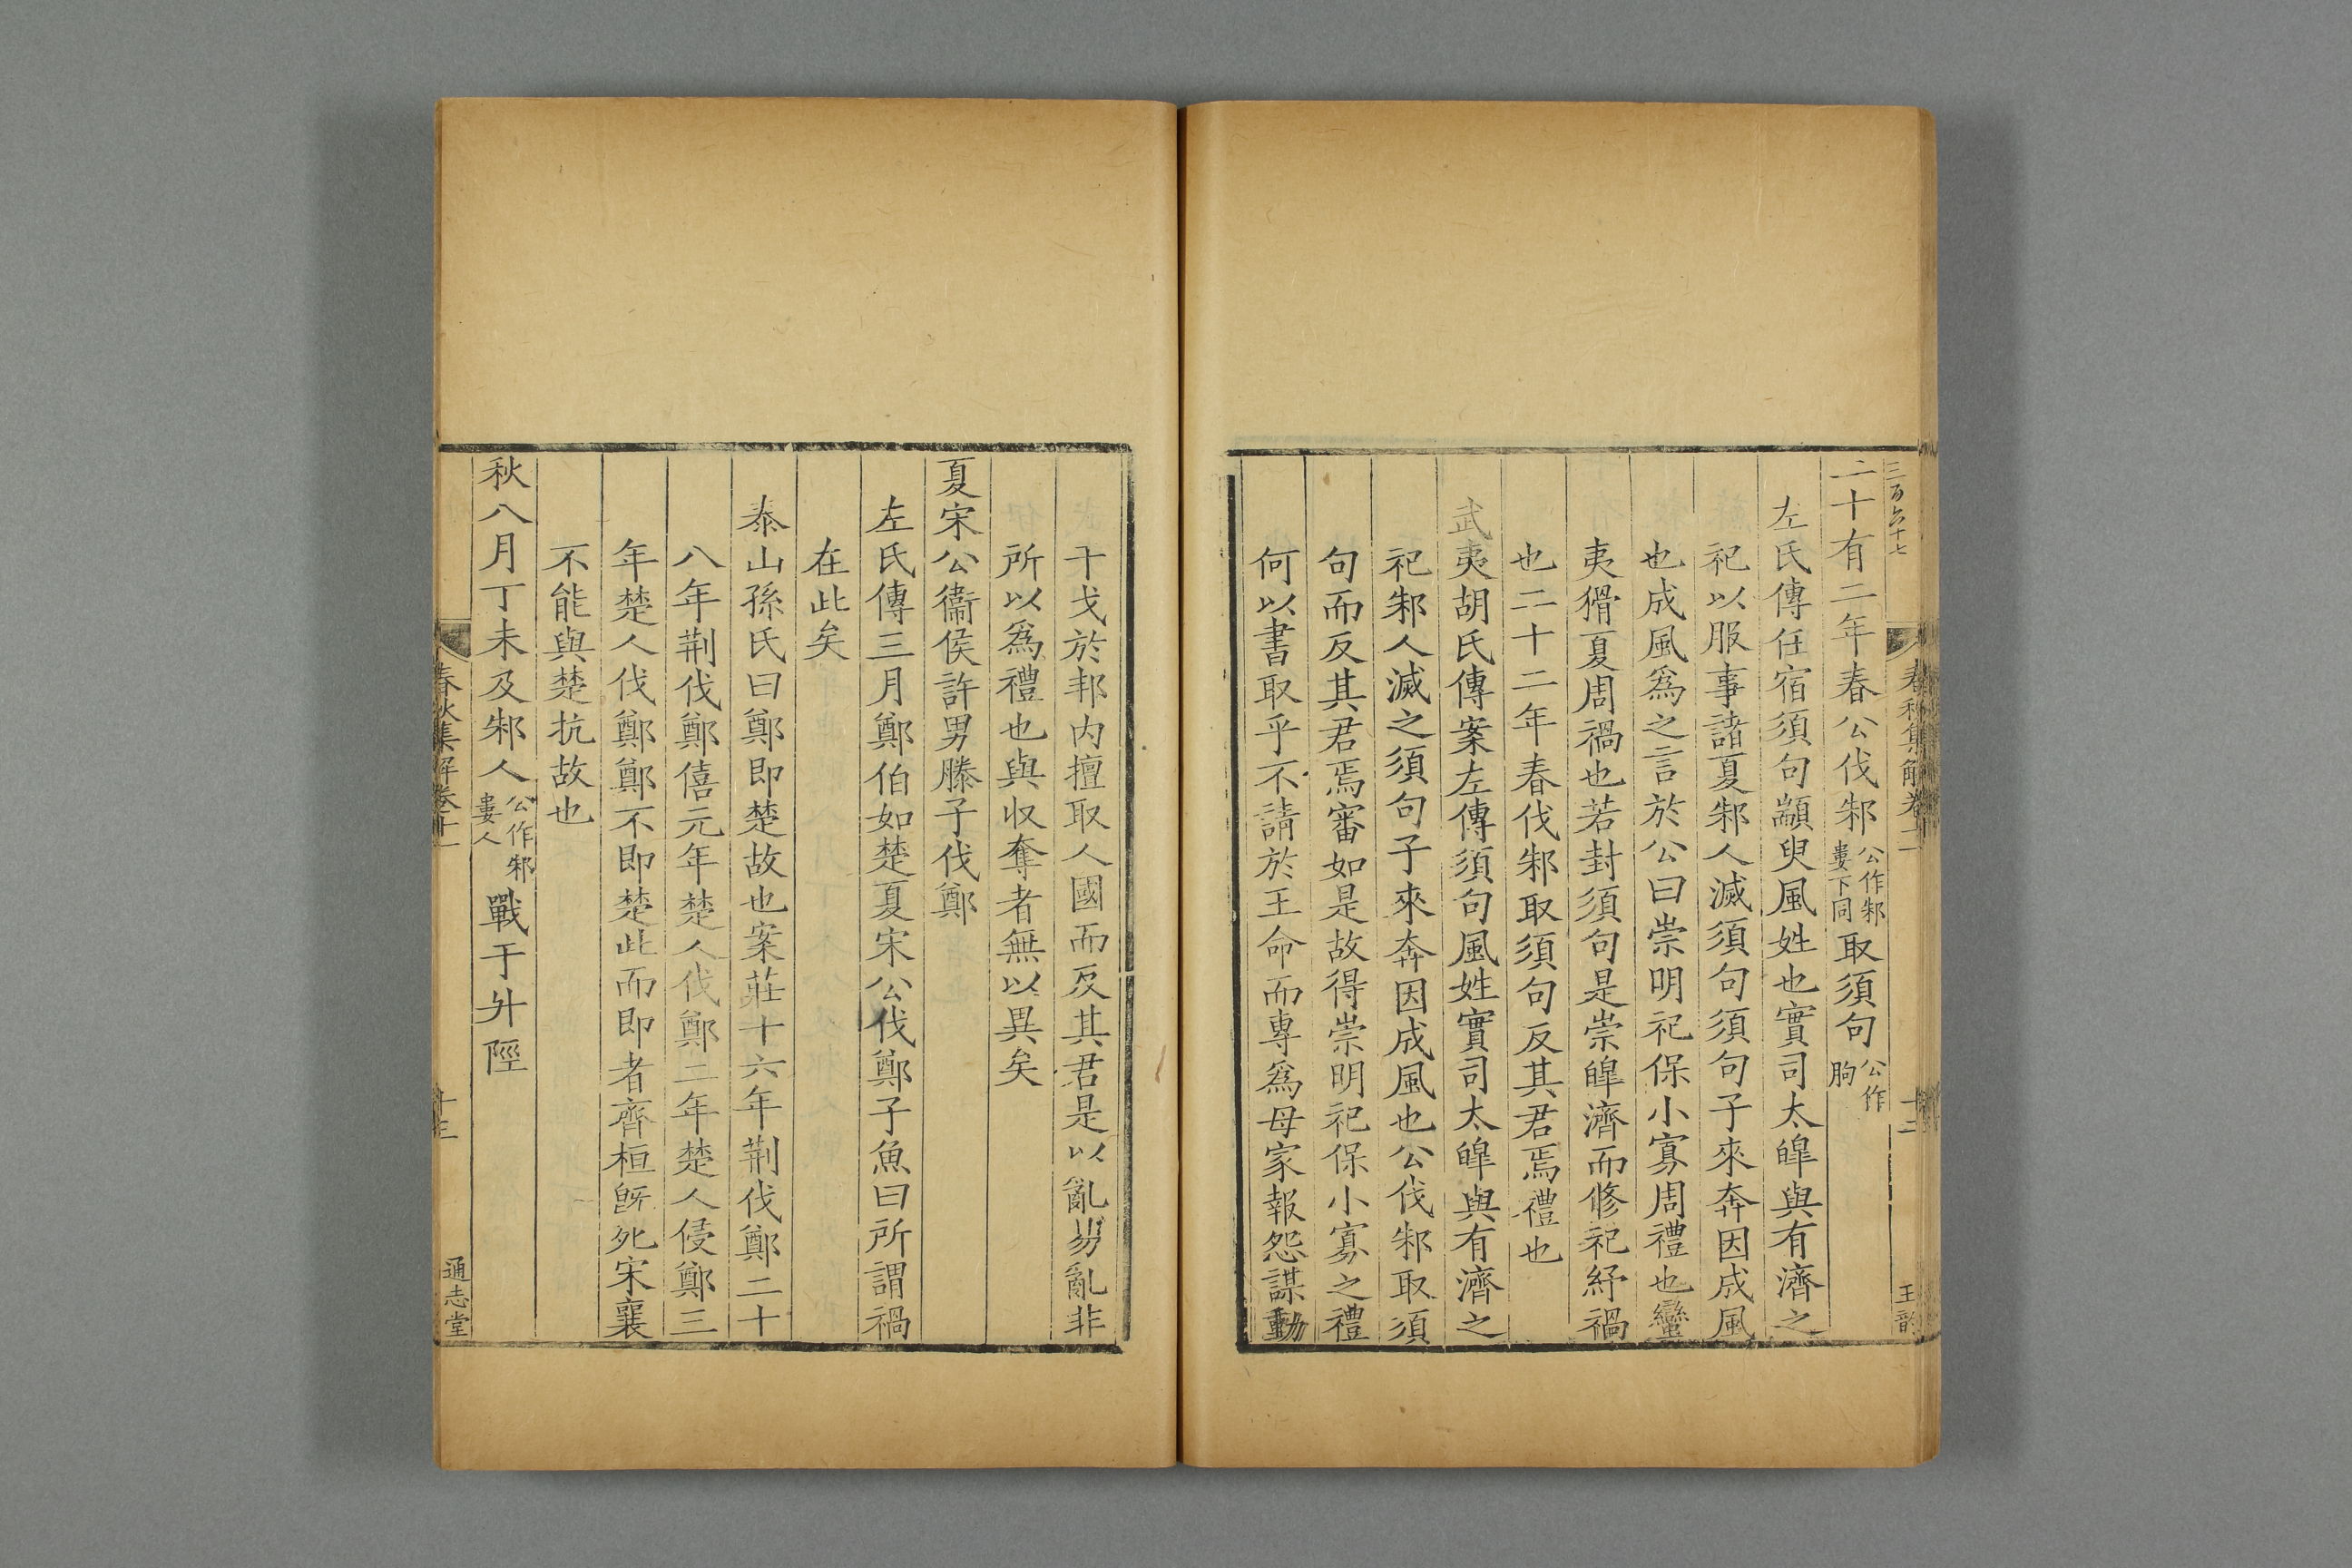 三百六十七
春秋集解卷十一
十二
王韵
二十有二年春公伐邾公作邾婁下同取須句公作朐
左氏傳任宿須句顓臾風姓也實司太皥與有濟之
祀以服事諸夏邾人滅須句須句子來奔因成風
也成風爲之言於公曰崇明祀保小寡周禮也蠻
夷猾夏周禍也若封須句是崇皥濟而脩祀紓禍
也二十二年春伐邾取須句反其君焉禮也
武夷胡氏傳案左傳須句風姓實司太皥與有濟之
祀邾人滅之須句子來奔因成風也公伐邾取須
句而反其君焉審如是故得崇明祀保小寡之禮
何以書取乎不請於王命而專爲母家報怨謀動
干戈於邦内擅取人國而反其君是以亂易亂非
所以爲禮也與収奪者無以異矣
夏宋公衞侯許男滕子伐鄭
左氏傳三月鄭伯如楚夏宋公伐鄭子魚曰所謂禍
在此矣
泰山孫氏曰鄭即楚故也案莊十六年荆伐鄭二十
八年荆伐鄭僖元年楚人伐鄭二年楚人侵鄭三
年楚人伐鄭鄭不即楚此而即者齊桓旣死宋襄
不能與楚抗故也
秋八月丁未及邾人公作邾婁人戰于升陘
春秋集解卷十一
十三
通志堂